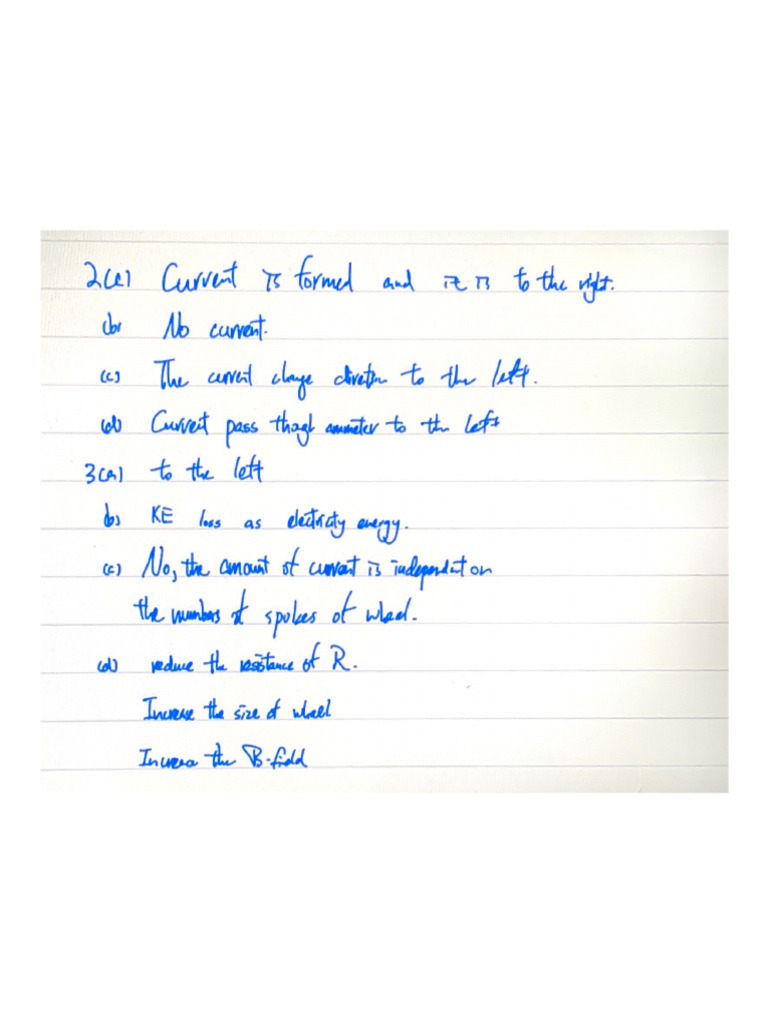 2(a) Current is formed and it is to the right.
(b) No current.
(c) The current change direction to the left.
(d) Current pass though ammeter to the left
3(a) to the left
(b) KE loss as electricity energy.
(c) No, the amount of current is independent on
the numbers of spokes of wheel.
(d) reduce the resistance of R.
Increase the size of wheel
Increase the B-field